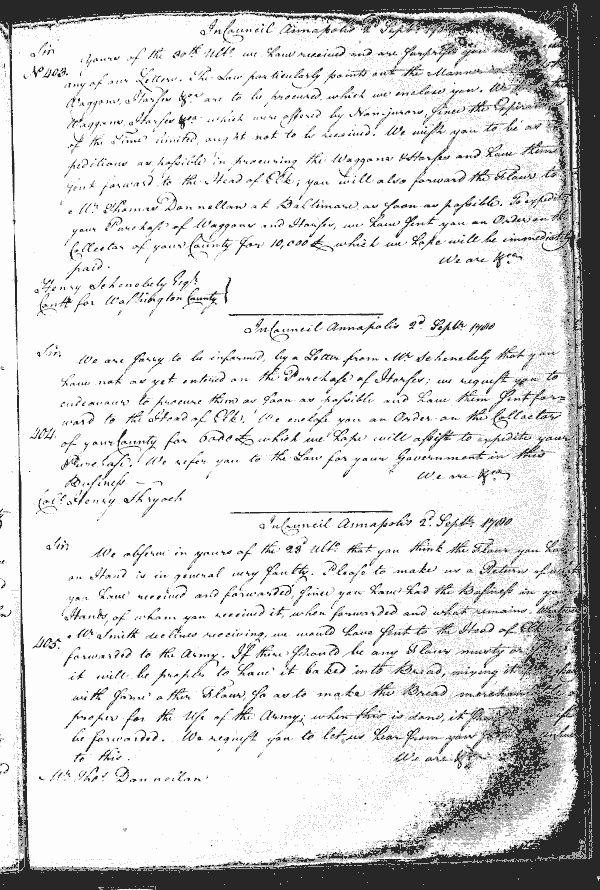 In Council Annapolis 2d Septr 1780
Sir
No 403. Yours of the 30th Ulto we have received and are surprised you
any of our Letters. The Law particularly points out the Manner
Waggons, Horses &ca are to be procured, which we enclose you. We
Waggons, Horses &ca which were offered by Nonjurors, since the Expiration
of the Time limited, ought not to be received. We wish you to be as
peditious as possible in procuring the Waggons & Horses and have them
sent forward to the Head of Elk; you will also forward the Flour to
Mr Thomas Donnellan at Baltimore as soon as possible. To expedite
your Purchase of Waggons and Horses, we have sent you an Order on the
Collector of your County for 10,000 £ which we hope will be immediately
paid. We are &ca
Henry Schenebely Esqr
Comy for Washington County
In Council Annapolis 2d Septr 1780
Sir
We are sorry to be informed, by a Letter from Mr Schenebely that you
have not as yet entered on the Purchase of Horses; we request you to
endeavour to procure them as soon as possible and have them sent for=
ward to the Head of Elk. We enclose you an Order on the Collector
404. of your County for 6000 £ which we hope will assist to expedite your
Purchase. We refer you to the Law for your Government in this
Business We are &ca
Colo Henry Shryock
In Council Annapolis 2d Septr 1780
Sir
We observe in yours of the 23d Ulto that you think the Flour you have
on Hand is in general very faulty. Please to make us a Return of what
you have received and forwarded, since you have had the Business in your
Hands, of whom you received it, when forwarded and what remains.
405. Mr Smith declines receiving, we would have sent to the Head of Elk
forwarded to the Army. If there should be any Flour musty or
it will be proper to have it baked into Bread, mixing it
with some other Flour so as to make the Bread
proper for the Use of the Army; when this is done, it
be forwarded. We request you to let us hear from you
to this. We are &ca
Mr Thos Donnellan